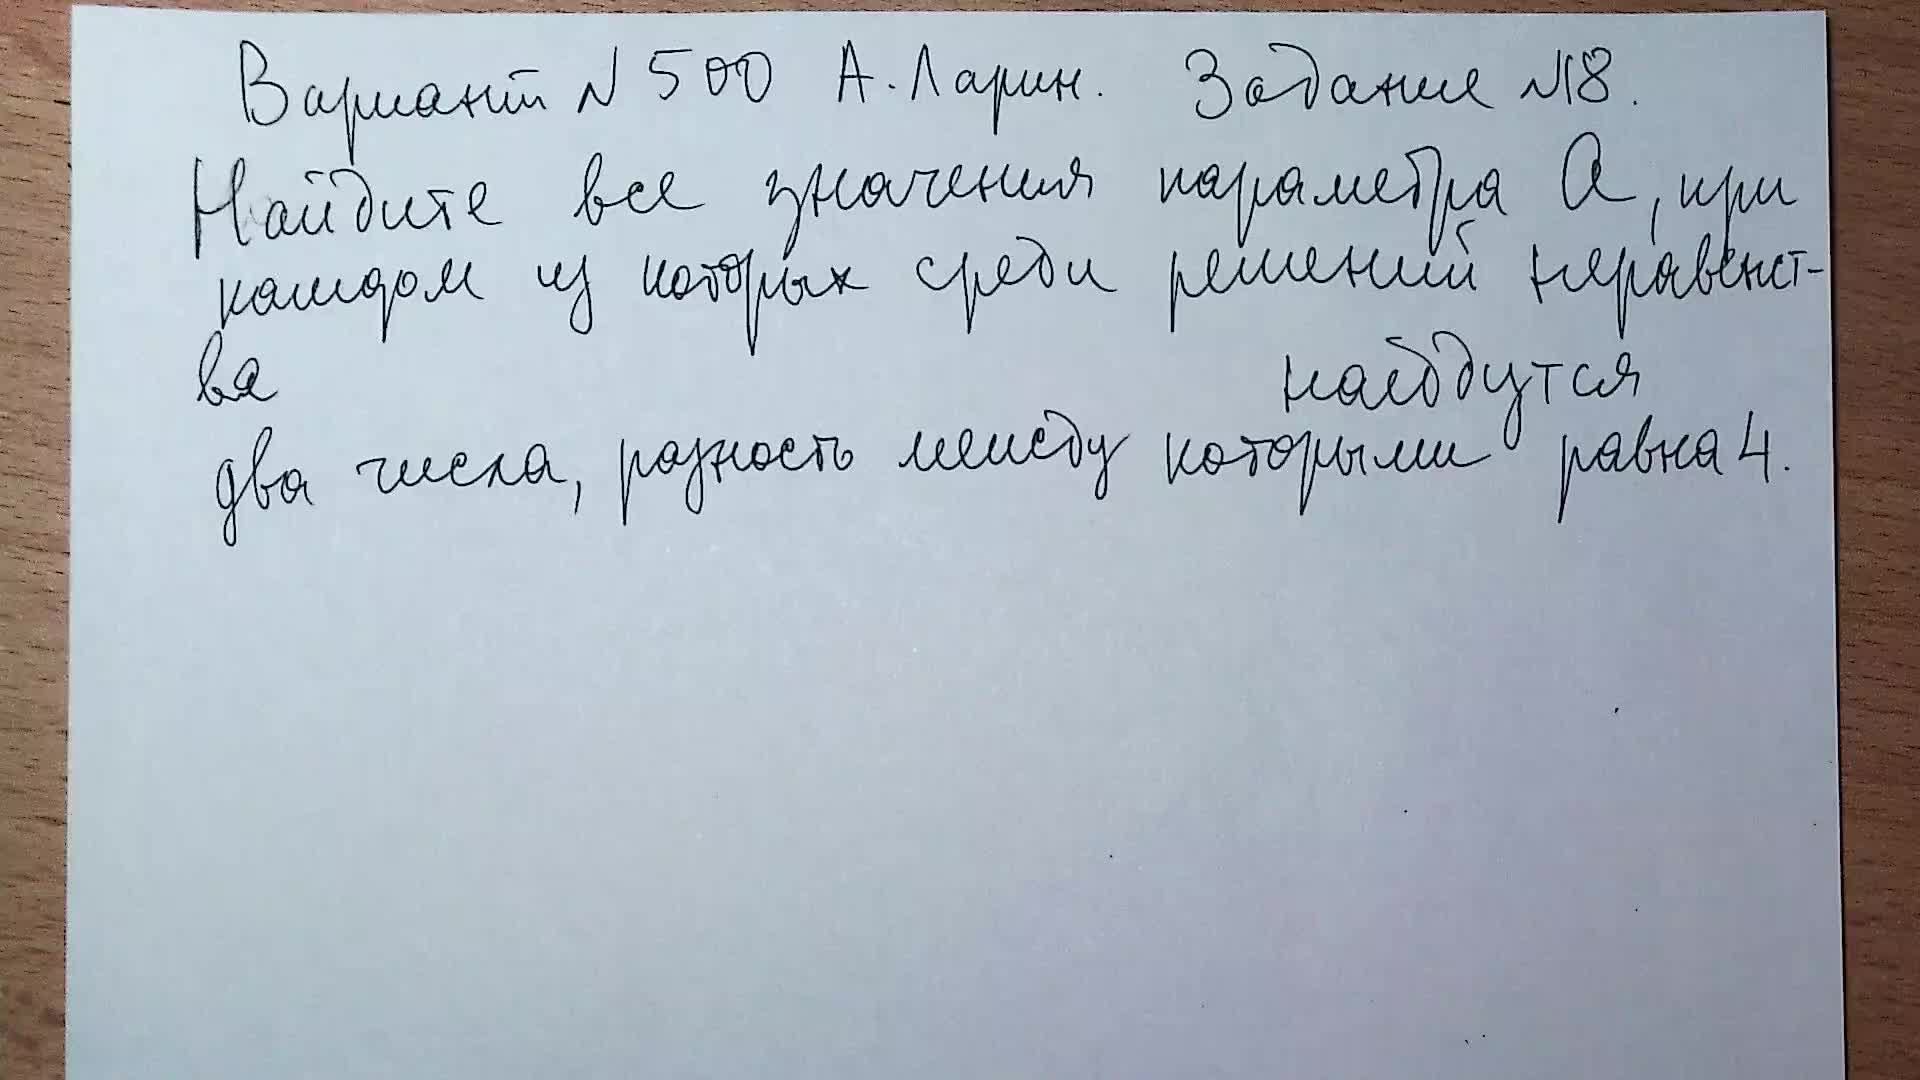 Вариант N 500 А. Ларин. Задание №18.
Найдите все значения параметра а, при
каждом из которых среди решений неравенст-
ва найдутся
два числа, разность между которыми равна 4.